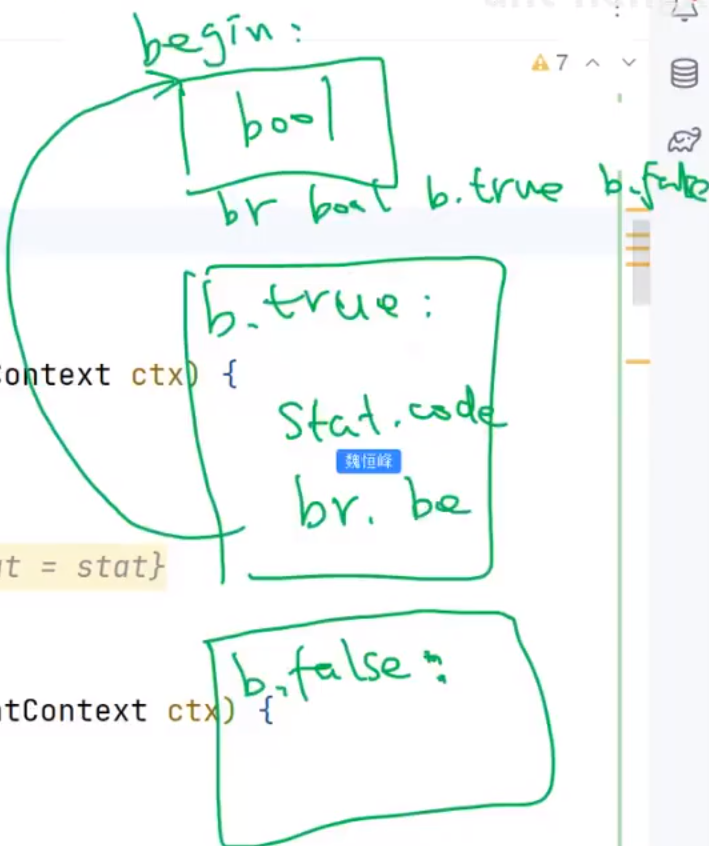 begin:
7
bool
br bool b.true b.false
b.true:
Context ctx) {
Stat.code
魏恒峰
br. be
t = stat}
b.false:
tContext ctx) {